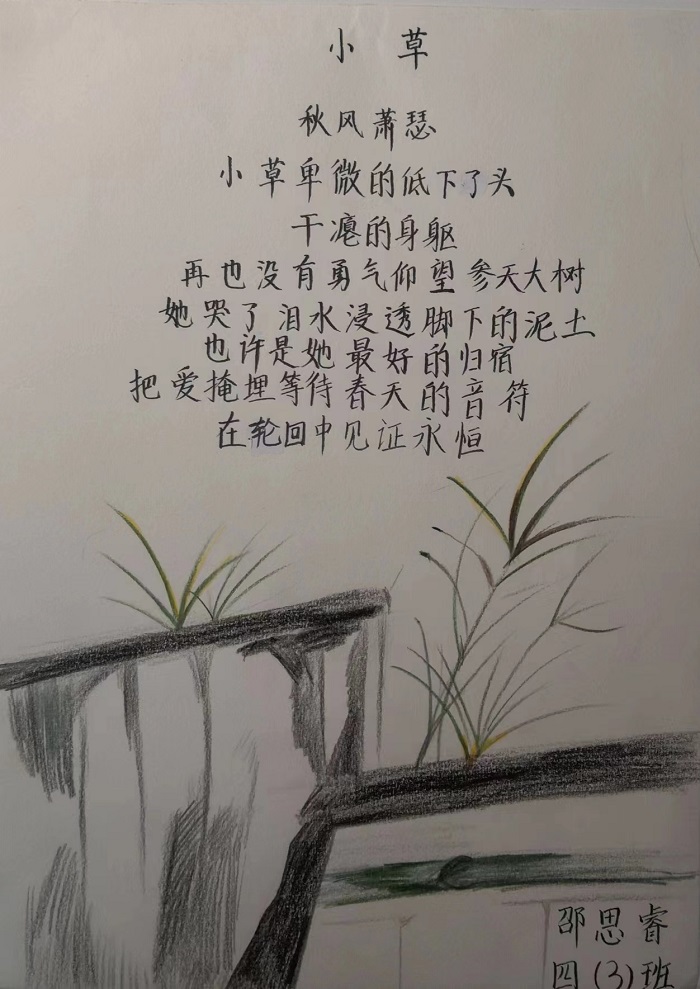 小草
秋风萧瑟
小草卑微的低下了头
干瘪的身躯
再也没有勇气仰望参天大树
她哭了泪水浸透脚下的泥土
也许是她最好的归宿
把爱掩埋等待春天的音符
在轮回中见证永恒
邵思睿
四(3)班